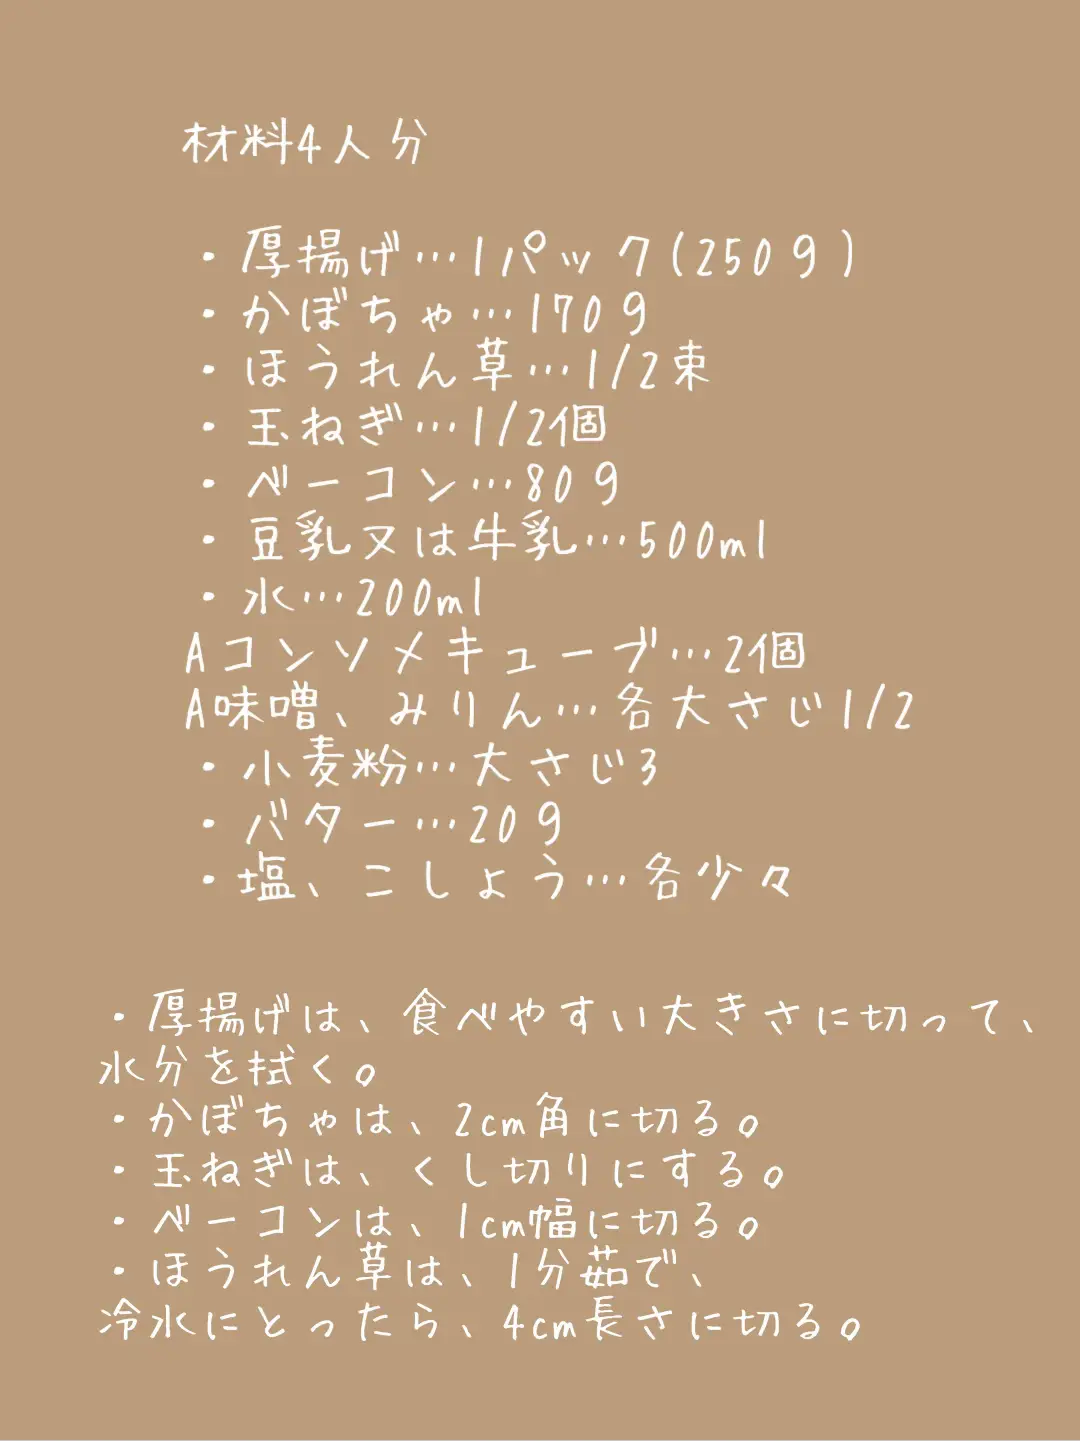 材料4人分
・厚揚げ…1パック(250g)
・かぼちゃ…170g
・ほうれん草…1/2束
・玉ねぎ…1/2個
・ベーコン…80g
・豆乳又は牛乳…500ml
・水…200ml
Aコンソメキューブ…2個
A味噌、みりん…各大さじ1/2
・小麦粉…大さじ3
・バター…20g
・塩、こしょう…各少々
・厚揚げは、食べやすい大きさに切って、
水分を拭く。
・かぼちゃは、2cm角に切る。
・玉ねぎは、くし切りにする。
・ベーコンは、1cm幅に切る。
・ほうれん草は、1分茹で、
冷水にとったら、4cm長さに切る。